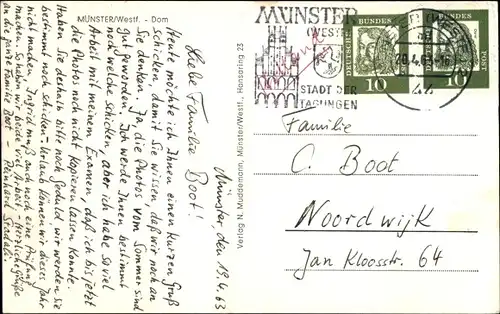 MÜNSTER/Westf. - Dom
Münster, den 19.4.63
Liebe Familie Boot!
Heute möchte ich Ihnen einen kurzen Gruß
schicken, damit Sie wissen, daß wir noch an
Sie denken. Ja, die Photos vom Sommer sind
gut geworden. Ich werde Ihnen bestimmt
noch welche schicken, aber ich habe so viel
Arbeit mit meinem Examen, daß ich bis jetzt
die Photos noch nicht kopieren lassen konnte.
Haben Sie deshalb bitte noch Geduld wir werden sie
bestimmt noch schicken. - Urlaub können wir dieses Jahr
nicht machen. Ingrid muß auch noch eine Prüfung
machen. So haben wir beide viel Arbeit. - Herzliche Grüße
an die ganze Familie Boot - Reinhard
Verlag N. Muddemann, Münster/Westf., Hansaring 25
MÜNSTER
(WESTF)
STADT DER
TAGUNGEN
20.4.63-16
44
DEUTSCHE
BUNDES
POST
10
DEUTSCHE
BUNDES
10
Familie
C. Boot
Noordwijk
Jan Kloosstr. 64